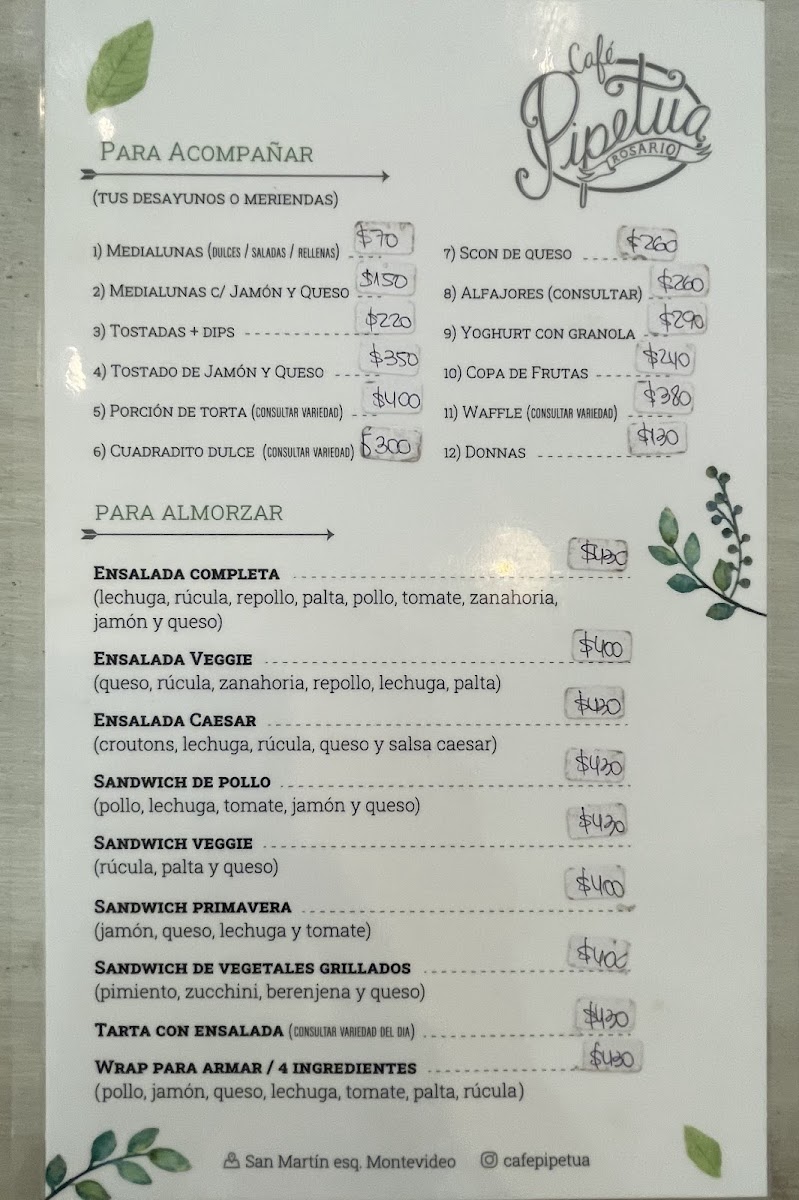 Café
Pipetua
ROSARIO
PARA ACOMPAÑAR
(TUS DESAYUNOS O MERIENDAS)
1) MEDIALUNAS (DULCES / SALADAS / RELLENAS) $70
2) MEDIALUNAS C/ JAMÓN Y QUESO $150
3) TOSTADAS + DIPS $220
4) TOSTADO DE JAMÓN Y QUESO $350
5) PORCIÓN DE TORTA (CONSULTAR VARIEDAD) $400
6) CUADRADITO DULCE (CONSULTAR VARIEDAD) $300
7) SCON DE QUESO $260
8) ALFAJORES (CONSULTAR) $260
9) YOGHURT CON GRANOLA $290
10) COPA DE FRUTAS $240
11) WAFFLE (CONSULTAR VARIEDAD) $380
12) DONNAS $130
PARA ALMORZAR
ENSALADA COMPLETA $430
(lechuga, rúcula, repollo, palta, pollo, tomate, zanahoria,
jamón y queso)
ENSALADA VEGGIE $400
(queso, rúcula, zanahoria, repollo, lechuga, palta)
ENSALADA CAESAR $430
(croutons, lechuga, rúcula, queso y salsa caesar)
SANDWICH DE POLLO $430
(pollo, lechuga, tomate, jamón y queso)
SANDWICH VEGGIE $430
(rúcula, palta y queso)
SANDWICH PRIMAVERA $400
(jamón, queso, lechuga y tomate)
SANDWICH DE VEGETALES GRILLADOS $400
(pimiento, zucchini, berenjena y queso)
TARTA CON ENSALADA (CONSULTAR VARIEDAD DEL DIA) $430
WRAP PARA ARMAR / 4 INGREDIENTES $430
(pollo, jamón, queso, lechuga, tomate, palta, rúcula)
San Martín esq. Montevideo cafepipetua